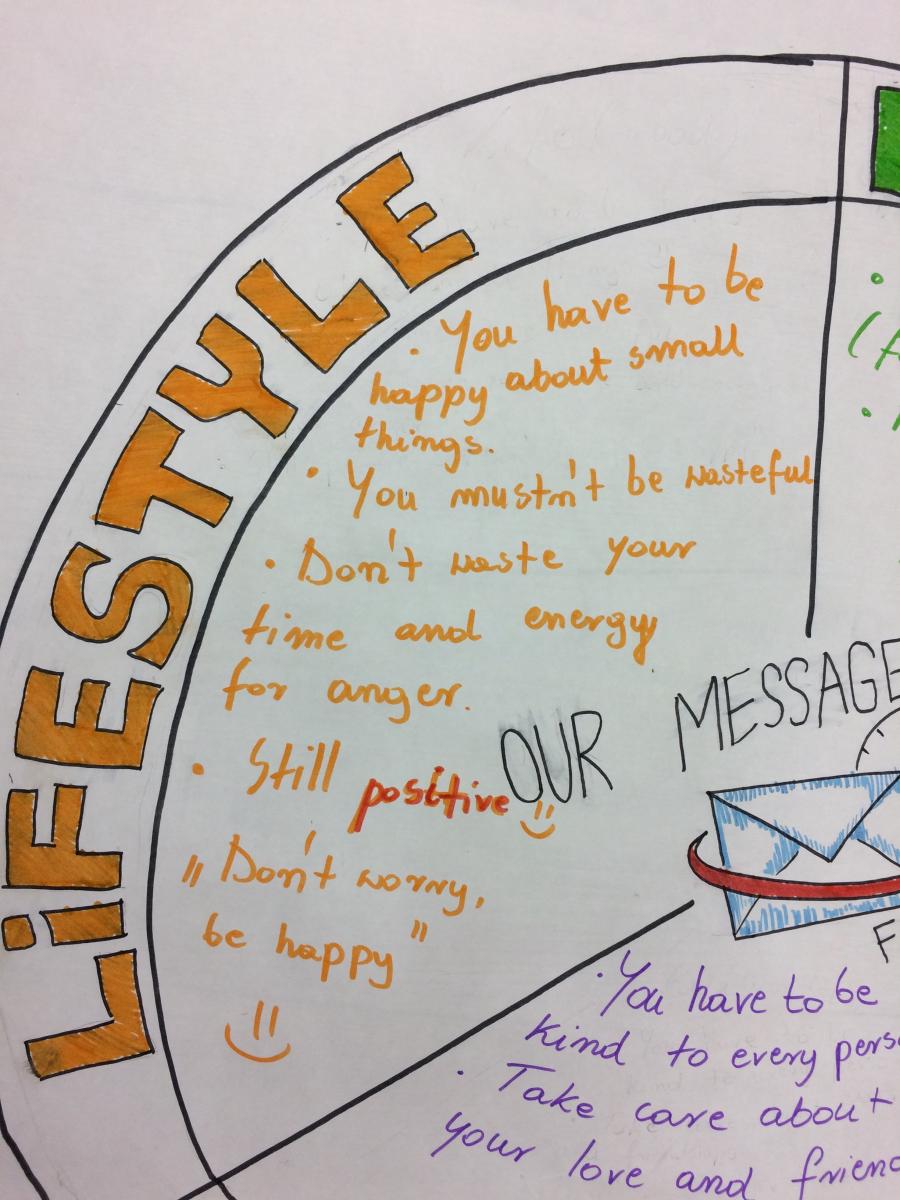 LiFESTYLE
· You have to be
happy about small
things.
· You mustn't be wasteful
· Don't waste your
time and energy
for anger.
· Still positive
„ Don't worry,
be happy "
OUR MESSAGE
F
· You have to be
kind to every pers
· Take care about
your love and frien